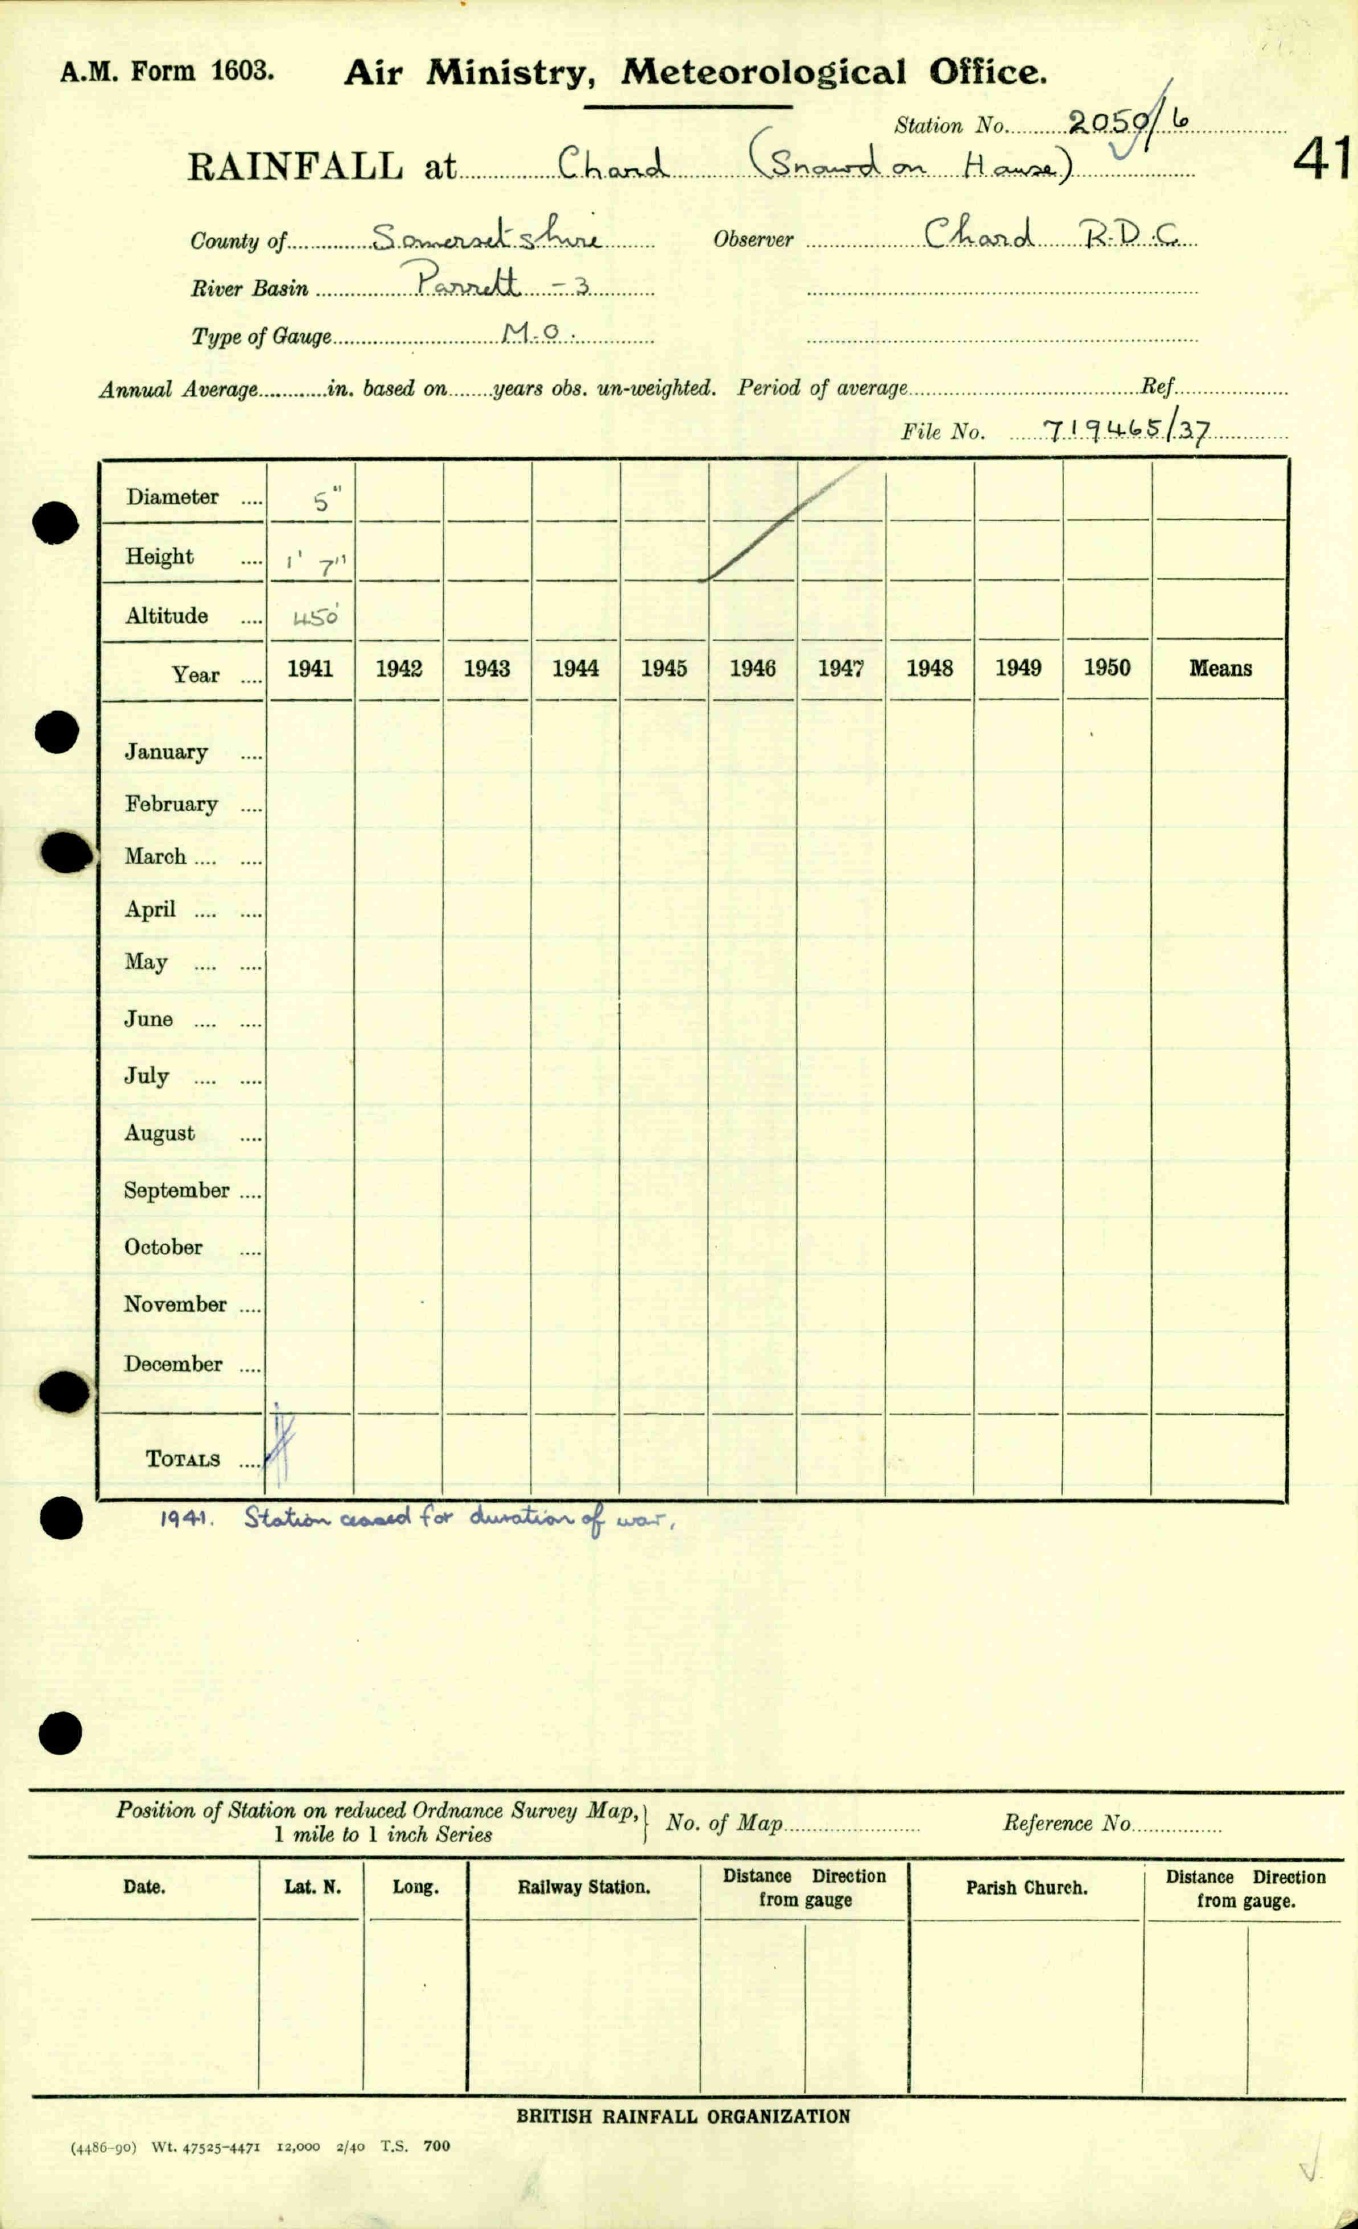 A.M. Form 1603. Air Ministry, Meteorological Office.
Station No. 2050/6
41
RAINFALL at Chard (Snowdon House)
County of Somersetshire Observer Chard R.D.C.
River Basin Parrett - 3
Type of Gauge M.O.
Annual Average in. based on years obs. un-weighted. Period of average Ref.
File No. 719465/37
Diameter 5"
Height 1' 7"
Altitude 450'
Year 1941 1942 1943 1944 1945 1946 1947 1948 1949 1950 Means
January
February
March
April
May
June
July
August
September
October
November
December
TOTALS
1941. Station ceased for duration of war.
Position of Station on reduced Ordnance Survey Map, No. of Map Reference No.
1 mile to 1 inch Series
Date. Lat. N. Long. Railway Station. Distance Direction from gauge Parish Church. Distance Direction from gauge.
BRITISH RAINFALL ORGANIZATION
(4486-90) Wt. 47525-4471 12,000 2/40 T.S. 700